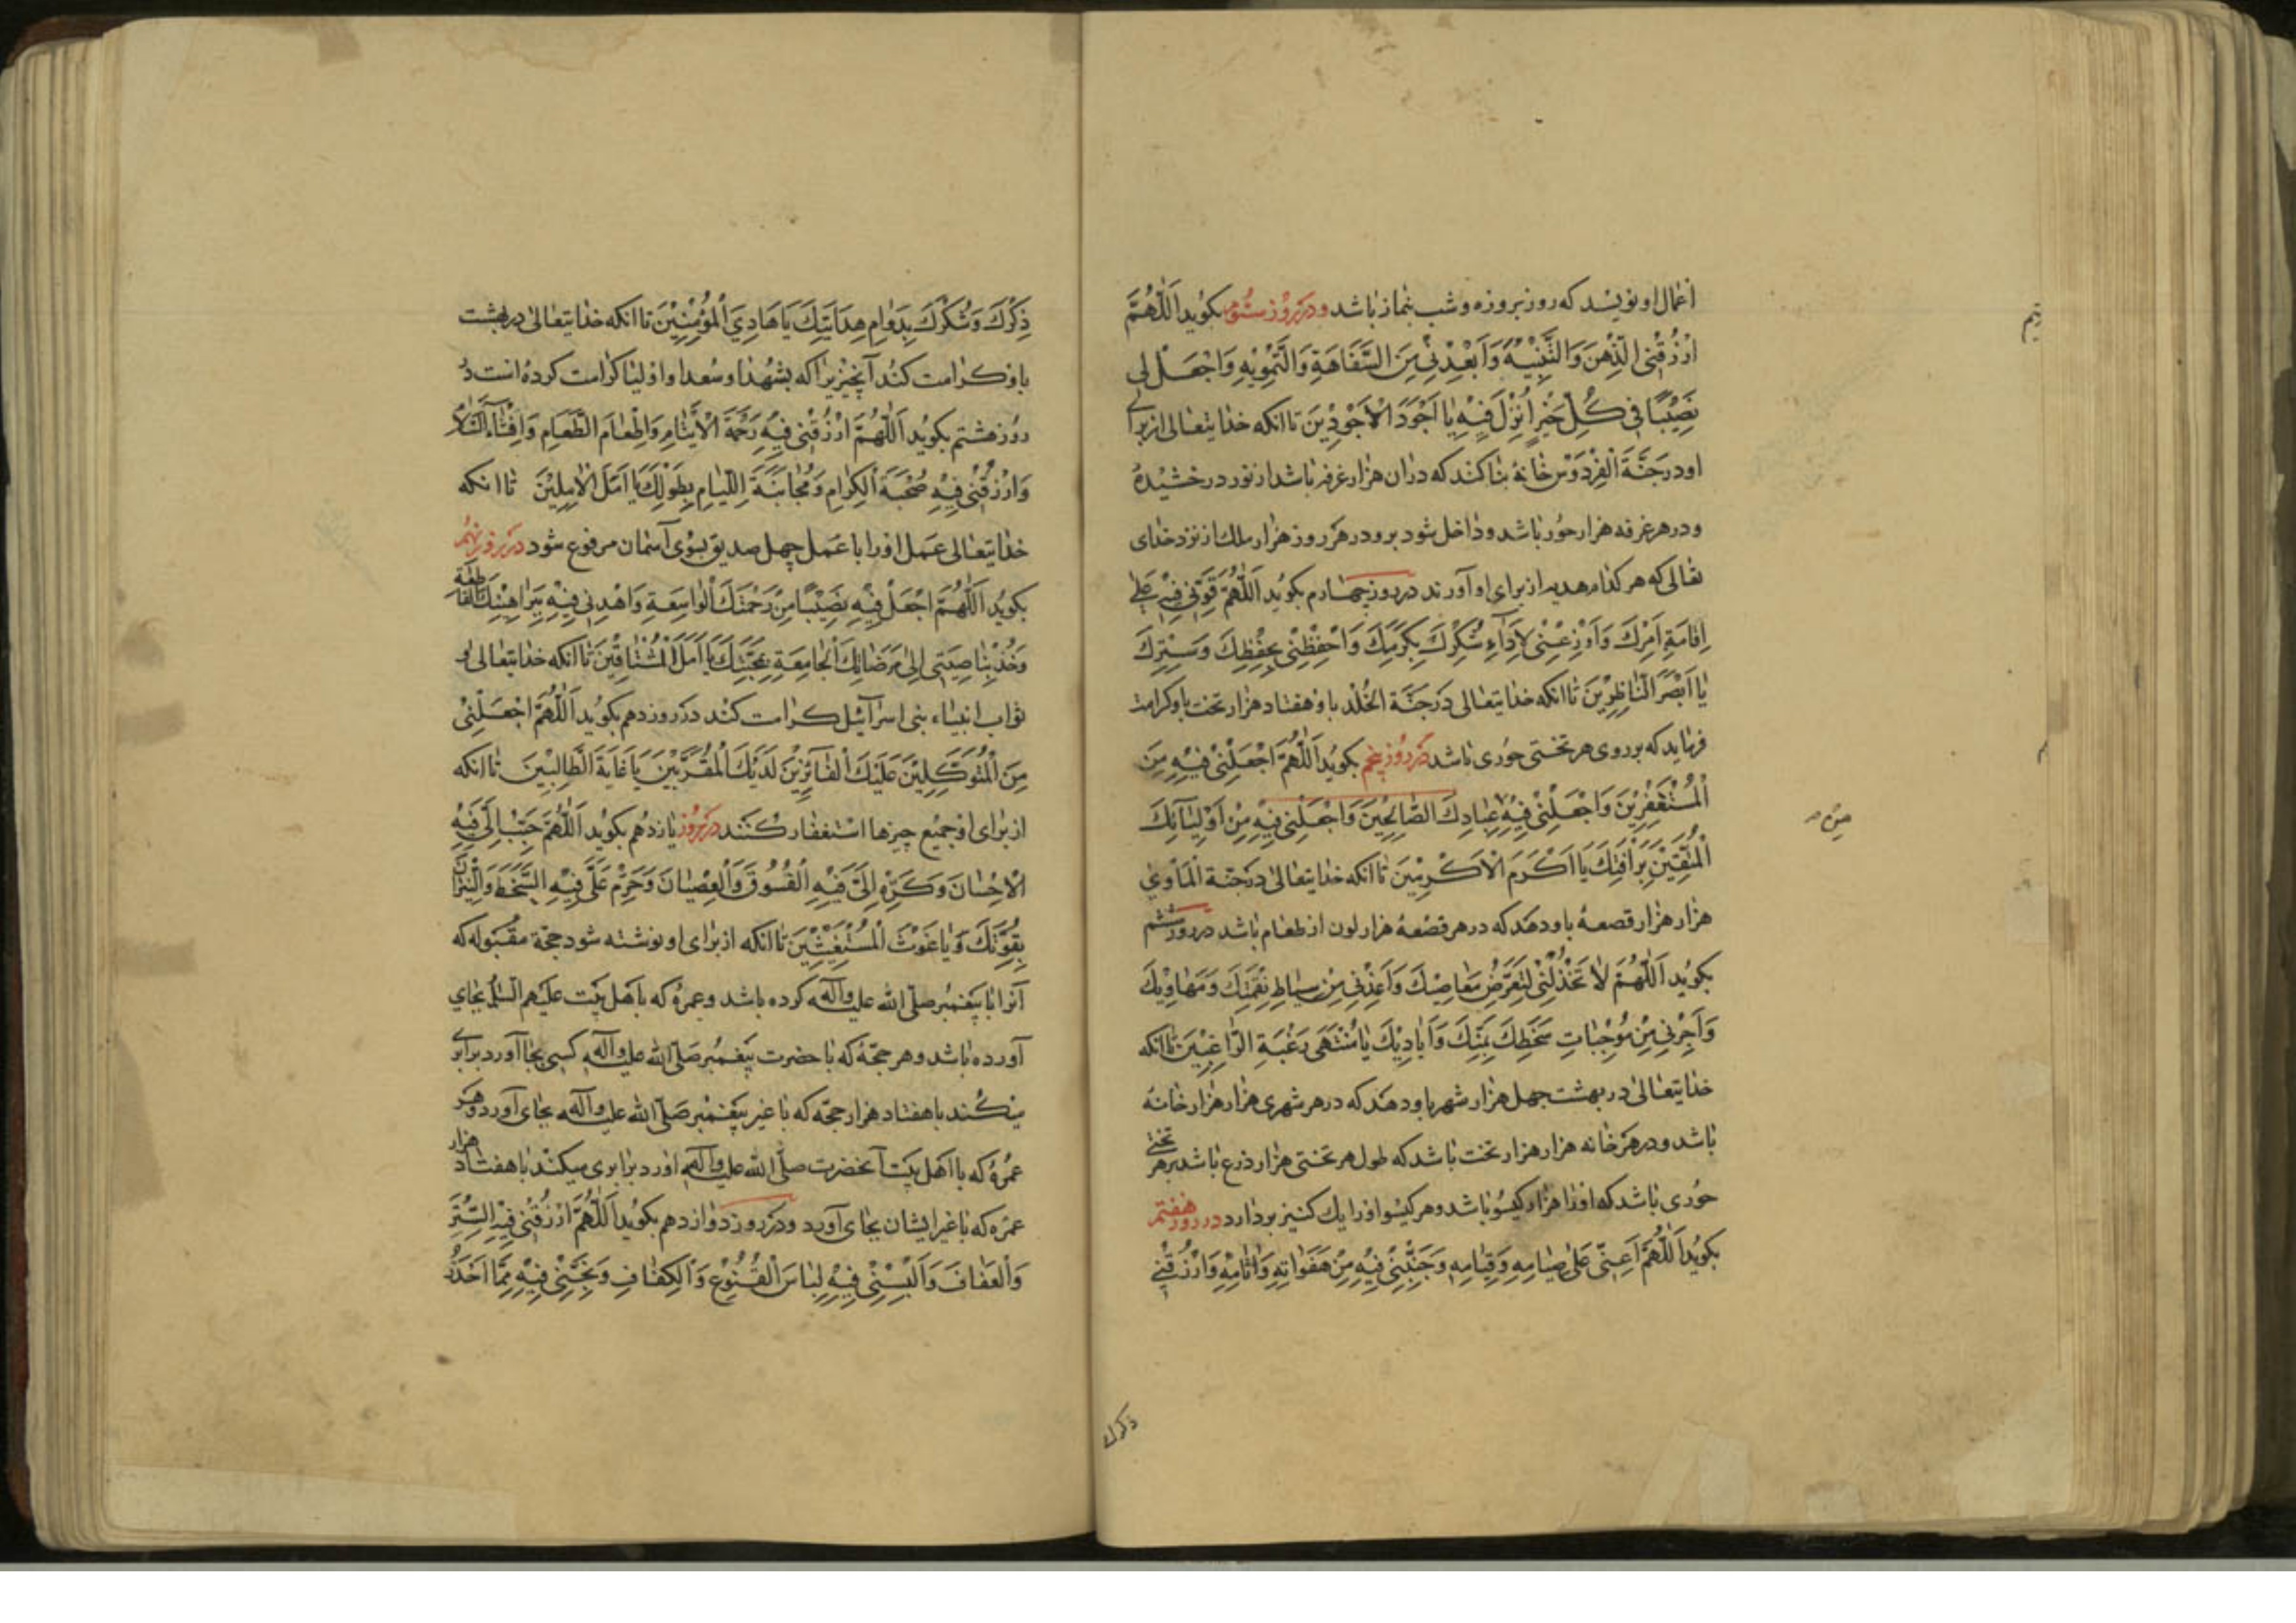 اَعمال او نویسد که روز بروزه و شب بنماز باشد و در روز سوم بکوید اَللّهُمَّ
ارْزُقْنِی الذِّهْنَ وَالتَّنْبِیْهَ وَاَبْعِدْنِیْ مِنَ السَّفَاهَةِ وَالتَّمْوِیْهِ وَاجْعَلْ لِی
نَصِیْبًا فِی کُلِّ خَیْرٍ اُنْزِلَ فِیْهِ یٰا اَجْوَدَ الْاَجْوَدِیْنَ تا انکه خدایتعالی از برای
او در جَنَّةَ الْفِرْدَوْس خانهٔ بنا کند که در ان هزار غرفه باشد از نور درخشیده
و در هر غرفه هزار حور باشد و داخل شود برو در هر روز هزار ملك از نزد خدای
تعالی که هر کدام هدیه از برای او آورند در روز چهارم بکوید اَللّهُمَّ قَوِّنِی فِیْهِ عَلٰی
اِقَامَةِ اَمْرِكَ وَاَوْزِعْنِیْ لِاَدَاءِ شُکْرِكَ بِکَرَمِكَ وَاحْفَظْنِیْ بِحِفْظِكَ وَسِتْرِكَ
یٰا اَبْصَرَ النّٰاظِرِیْنَ تا انکه خدایتعالی در جَنَّة الخُلْد باو هفتاد هزار تخت باو کرامت
فرماید که بر روی هر تختی حوری باشد در روز پنجم بکوید اَللّهُمَّ اجْعَلْنِیْ فِیْهِ مِنَ
الْمُسْتَغْفِرِیْنَ وَاجْعَلْنِیْ فِیْهِ عِبٰادِكَ الصّٰالِحِیْنَ وَاجْعَلْنِی فِیْهِ مِنْ اَوْلِیٰآئِكَ
الْمُتَّقِیْنَ بِرَأْفَتِكَ یَا اَکْرَمَ الْاَکْرَمِیْنَ تا انکه خدایتعالی در جنّة الْمَأْوٰی
هزار هزار قصعهٔ باو دهد که در هر قصعهٔ هزار لون از طعام باشد در روز ششم
بکوید اَللّهُمَّ لَا تَخْذُلْنِیْ لِتَعَرُّضِ مَعٰاصِیْكَ وَاَعِذْنِی مِنْ سِیٰاطِ نِقْمَتِكَ وَمَهٰاوِیْكَ
وَاَجِرْنِی مِنْ مُوْجِبٰاتِ سَخَطِكَ بِمَنِّكَ وَاَیٰادِیْكَ یٰا مُنْتَهٰی رَغْبَةِ الرّٰاغِبِیْنَ تا انکه
خدایتعالی در بهشت چهل هزار شهر باو دهد که در هر شهری هزار هزار خانه
باشد و در هر خانه هزار هزار تخت باشد که طول هر تختی هزار ذرع باشد بر هر تختی
حوری باشد که او را هزار کیسو باشد و هر کیسو او را یك کنیز بردارد در روز هفتم
بکوید اَللّهُمَّ اَعِنِّی عَلٰی صِیٰامِهِ وَقِیٰامِهِ وَجَنِّبْنِیْ فِیْهِ مِنْ هَفَوٰاتِهِ وَاٰثٰامِهِ وَارْزُقْنِیْ
ذکرك
من
ذِکْرَكَ وَشُکْرَكَ بِدَوٰامِ هِدَایَتِكَ یَا هَادِیَ الْمُؤْمِنِیْنَ تا انکه خدایتعالی در بهشت
باو کرامت کند آنچیزیرا که بشهدا و سعدا و اولیا کرامت کرده است در
روز هشتم بکوید اَللّهُمَّ ارْزُقْنِی فِیْهِ رَحْمَةَ الْاَیْتٰامِ وَاِطْعٰامَ الطَّعٰامِ وَاِفْشٰآءَ السَّلٰامِ
وَارْزُقْنِیْ فِیْهِ صُحْبَةَ الْکِرٰامِ وَمُجٰانَبَةَ اللِّیٰامِ بِطَوْلِكَ یٰا اَمَلَ الْاٰمِلِیْنَ تا انکه
خدایتعالی عمل او را با عمل چهل صدیق بسوی آسمان مرفوع شود در روز نهم
بکوید اَللّهُمَّ اجْعَلْ فِیْهِ نَصِیْبًا مِنْ رَحْمَتِكَ الْوٰاسِعَةِ وَاهْدِنِی فِیْهِ بِبَرٰاهِیْنِكَ القاطعة
وَخُذْ بِنٰاصِیَتِی اِلٰی مَرْضٰاتِكَ الْجٰامِعَةِ بِمَحَبَّتِكَ یٰا اَمَلَ الْمُشْتٰاقِیْنَ تا انکه خدایتعالی او
ثواب انبیاء بنی اسرآئیل کرامت کند در روز دهم بکوید اَللّهُمَّ اجْعَلْنِیْ
مِنَ الْمُتَوَکِّلِیْنَ عَلَیْكَ الْفٰآئِزِیْنَ لَدَیْكَ الْمُقَرَّبِیْنَ یٰا غَایَةَ الطّٰالِبِیْنَ تا انکه
از برای او جمیع چیزها استغفار کنند در روز یازدهم بکوید اَللّهُمَّ حَبِّبْ اِلَیَّ فِیْهِ
الْاِحْسٰانَ وَکَرِّهْ اِلَیَّ فِیْهِ الْفُسُوْقَ وَالْعِصْیٰانَ وَحَرِّمْ عَلَیَّ فِیْهِ السَّخَطَ وَالنِّیْرٰانَ
بِقُوَّتِكَ وَیٰا غَوْثَ الْمُسْتَغِیْثِیْنَ تا انکه از برای او نوشته شود حجة مقبوله که
آنرا با پیغمبر صلّی الله علیه وآله کرده باشد و عمرهٔ که با اهل بیت علیهم السلام بجای
آورده باشد و هر حجّهٔ که با حضرت پیغمبر صَلّی الله علیه وآله کسی بجا آورد برابر
میکند با هفتاد هزار حجّه که با غیر پیغمبر صَلّی الله علیه وآله بجای آورد و هر
عمرهٔ که با اهل بیت آنحضرت صلّی الله علیه وآله اورد برابری میکند با هفتاد هزار
عمره که با غیر ایشان بجای آورد و در روز دوازدهم بکوید اَللّهُمَّ ارْزُقْنِی فِیْهِ السِّتْرَ
وَالْعَفٰافَ وَاَلْبِسْنِیْ فِیْهِ لِبٰاسَ الْقُنُوْعِ وَالْکِفٰافِ وَنَجِّنِیْ فِیْهِ مِمَّا اَحْذَرُ